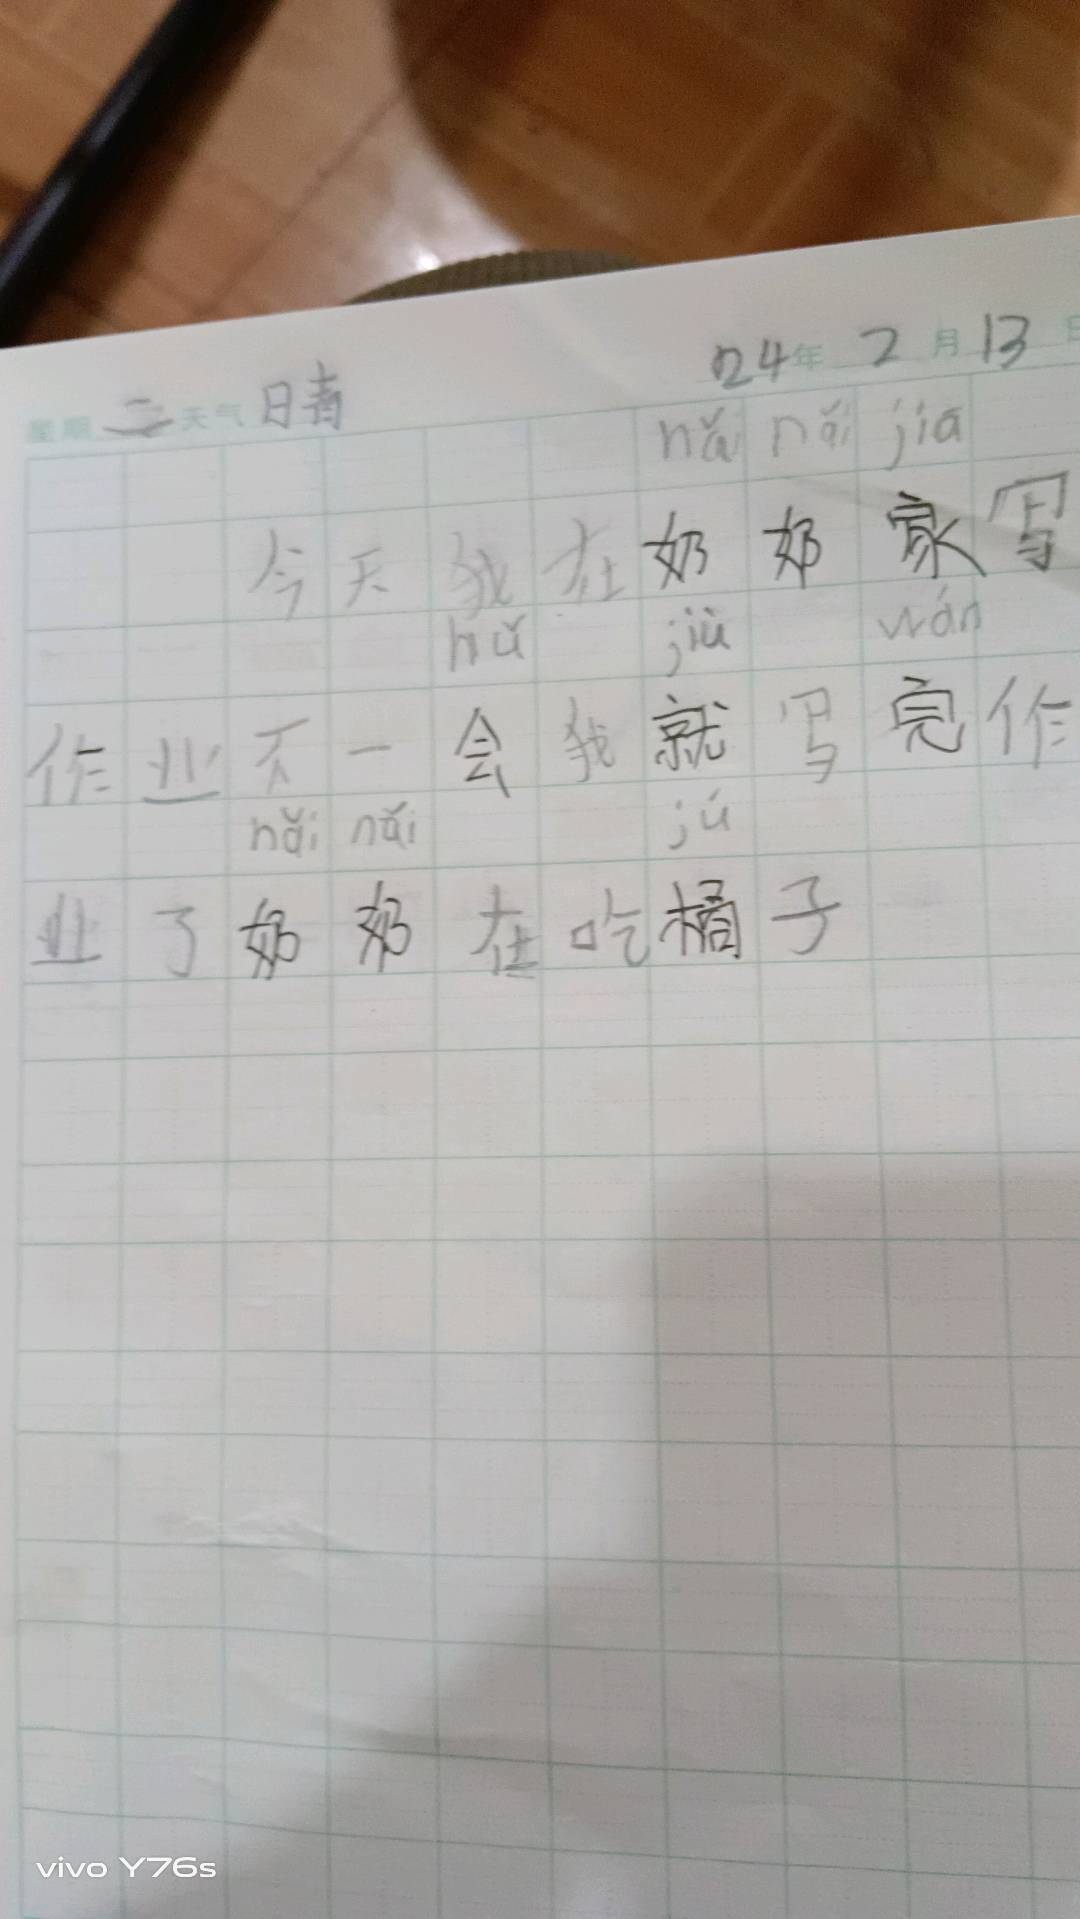 24年2月13日
星期二天气晴
nǎi nǎi jiā
今天我在奶奶家写
huǐ jiù wán
作业不一会我就写完作
nǎi nǎi jú
业了奶奶在吃橘子
vivo Y76s